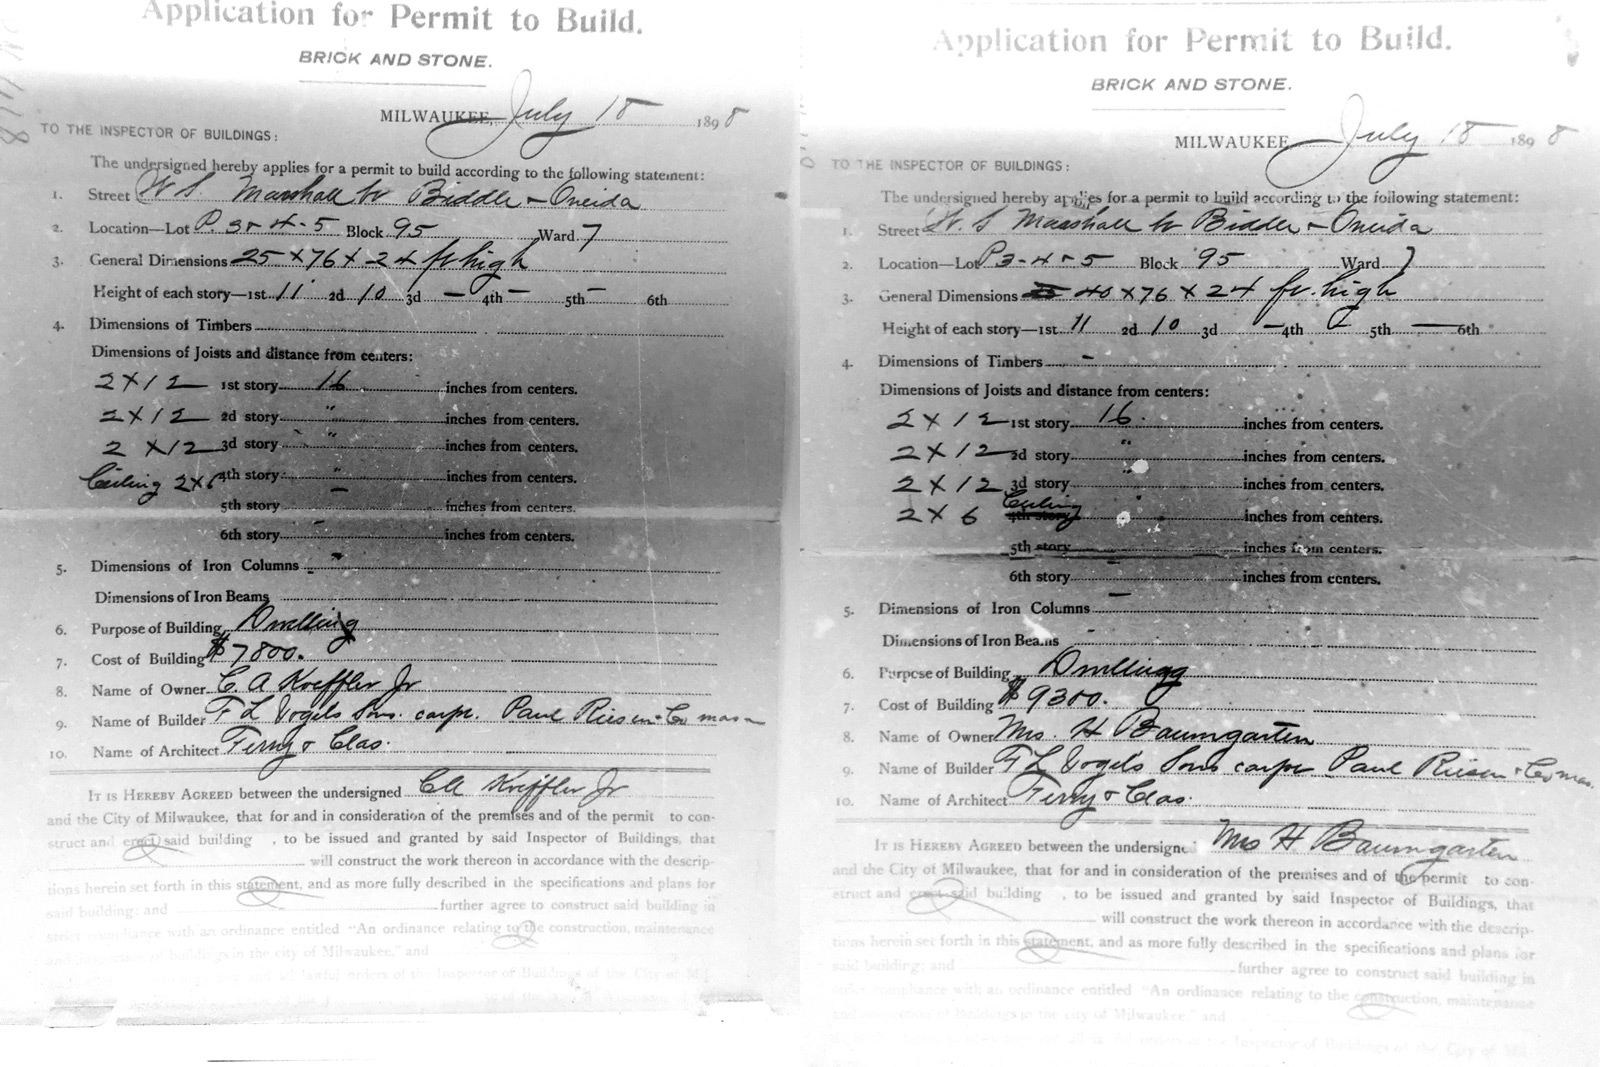 Application for Permit to Build.
BRICK AND STONE.
MILWAUKEE, July 18 1898
TO THE INSPECTOR OF BUILDINGS:
The undersigned hereby applies for a permit to build according to the following statement:
1. Street W. S. Marshall bt Biddle & Oneida
2. Location—Lot P. 3 & 4-5 Block 95 Ward 7
3. General Dimensions 25 × 76 × 24 ft high
Height of each story—1st 11 2d 10 3d — 4th — 5th — 6th
4. Dimensions of Timbers
Dimensions of Joists and distance from centers:
2 × 12 1st story 16 inches from centers.
2 × 12 2d story " inches from centers.
2 × 12 3d story " inches from centers.
Ceiling 2×6 4th story " inches from centers.
5th story — inches from centers.
6th story " inches from centers.
5. Dimensions of Iron Columns "
Dimensions of Iron Beams
6. Purpose of Building Dwelling
7. Cost of Building $7800.
8. Name of Owner C. A Koeffler Jr
9. Name of Builder F L Vogels Sons. carpr. Paul Riesen & Co mason
10. Name of Architect Ferry & Clas.
IT IS HEREBY AGREED between the undersigned CA Koeffler Jr
and the City of Milwaukee, that for and in consideration of the premises and of the permit to con-
struct and erect said building , to be issued and granted by said Inspector of Buildings, that
will construct the work thereon in accordance with the descrip-
tions herein set forth in this statement, and as more fully described in the specifications and plans for
said building; and further agree to construct said building in
strict compliance with an ordinance entitled "An ordinance relating to the construction, maintenance
and inspection of buildings in the city of Milwaukee," and
lawful orders of the Inspector of Buildings of the City of Mil-
Application for Permit to Build.
BRICK AND STONE.
MILWAUKEE, July 18 1898
TO THE INSPECTOR OF BUILDINGS:
The undersigned hereby applies for a permit to build according to the following statement:
1. Street W. S Marshall bt Biddle & Oneida
2. Location—Lot P 3-4 & 5 Block 95 Ward 7
3. General Dimensions 25 40 × 76 × 24 ft. high
Height of each story—1st 11 2d 10 3d — 4th — 5th — 6th
4. Dimensions of Timbers —
Dimensions of Joists and distance from centers:
2 × 12 1st story 16 inches from centers.
2 × 12 2d story " inches from centers.
2 × 12 3d story " inches from centers.
2 × 6 Ceiling 4th story " inches from centers.
5th story inches from centers.
6th story inches from centers.
5. Dimensions of Iron Columns —
Dimensions of Iron Beams
6. Purpose of Building Dwelling
7. Cost of Building $9300.
8. Name of Owner Mrs. H Baumgarten
9. Name of Builder F L Vogels Sons carpr Paul Riesen & Co mas.
10. Name of Architect Ferry & Clas.
IT IS HEREBY AGREED between the undersigned Mrs H Baumgarten
and the City of Milwaukee, that for and in consideration of the premises and of the permit to con-
struct and erect said building , to be issued and granted by said Inspector of Buildings, that
will construct the work thereon in accordance with the descrip-
tions herein set forth in this statement, and as more fully described in the specifications and plans for
said building; and further agree to construct said building in
strict compliance with an ordinance entitled "An ordinance relating to the construction, maintenance
and inspection of buildings in the city of Milwaukee" and
of the Inspector of Buildings of the City of Mil-